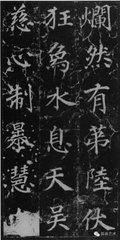 爛然有第陸伏
狂為水息天吴
慈心制暴慧